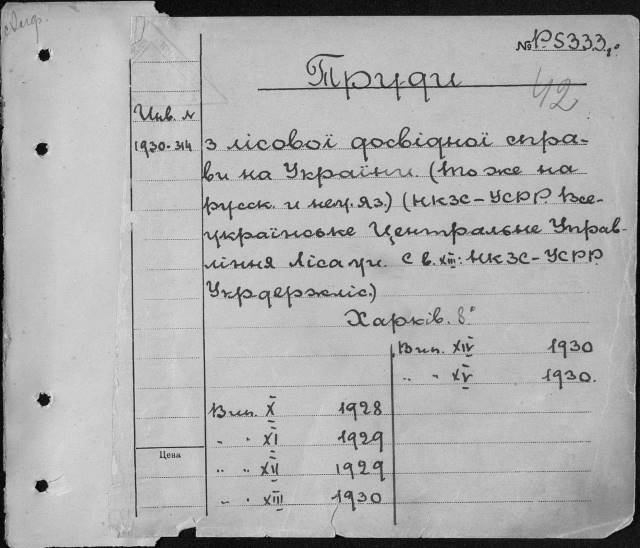 № PS333 8°
Труди
42
Инв. №
1930-314
з лісової досвідної спра-
ви на Україні. (То же на
русск. и нец. яз.) (НКЗС-УСРР Все-
українське Центральне Управ-
ління Лісами. С в. XIII: НКЗС-УСРР.
Укрдержліс.)
Харків. 8°
Вип. XIV 1930
„ „ XV 1930.
Вип. X 1928
„ „ XI 1929
„ „ XII 1929
„ „ XIII 1930
Цена